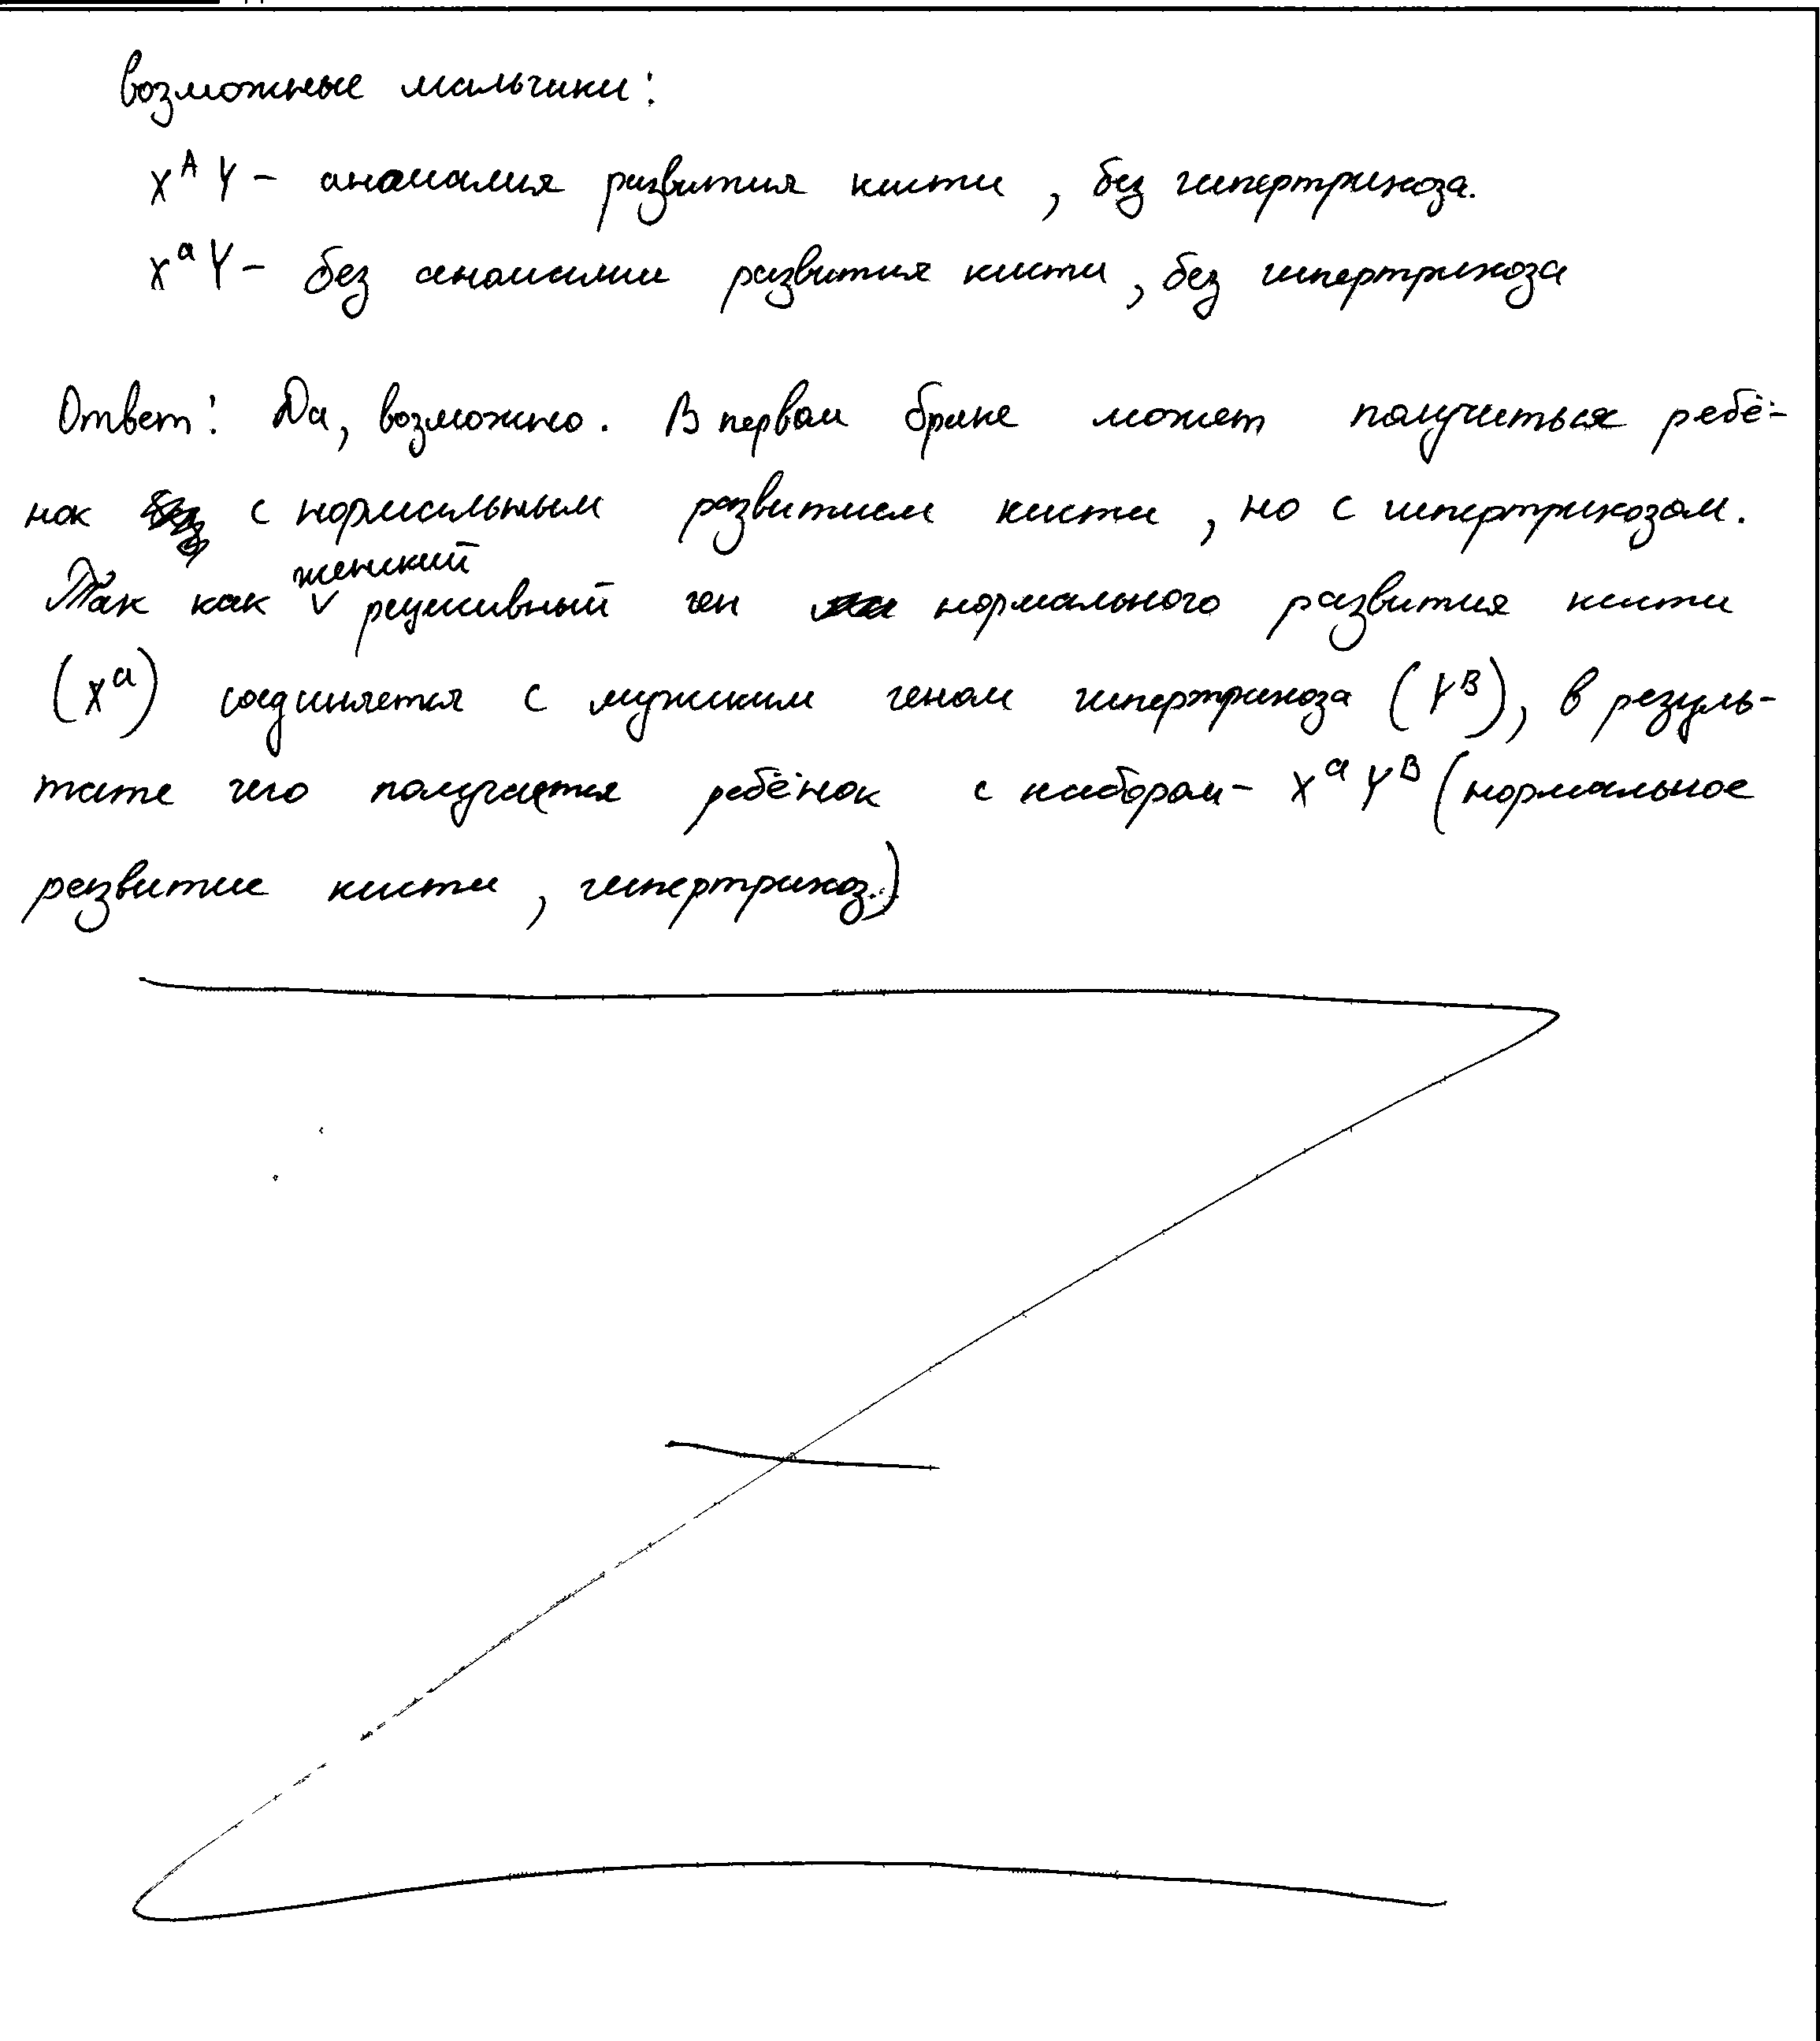 возможные мальчики:
X^A Y - аномалия развития кисти, без гипертрихоза.
X^a Y - без аномалии развития кисти, без гипертрихоза
Ответ: Да, возможно. В первом браке может получиться ребё-
нок с нормальным развитием кисти, но с гипертрихозом.
женский
Так как рецесивный ген нормального развития кисти
(X^a) соединяется с мужским геном гипертрихоза (Y^B), в резуль-
тате чего получается ребёнок с набором - X^a Y^B (нормальное
развитие кисти, гипертрихоз.)